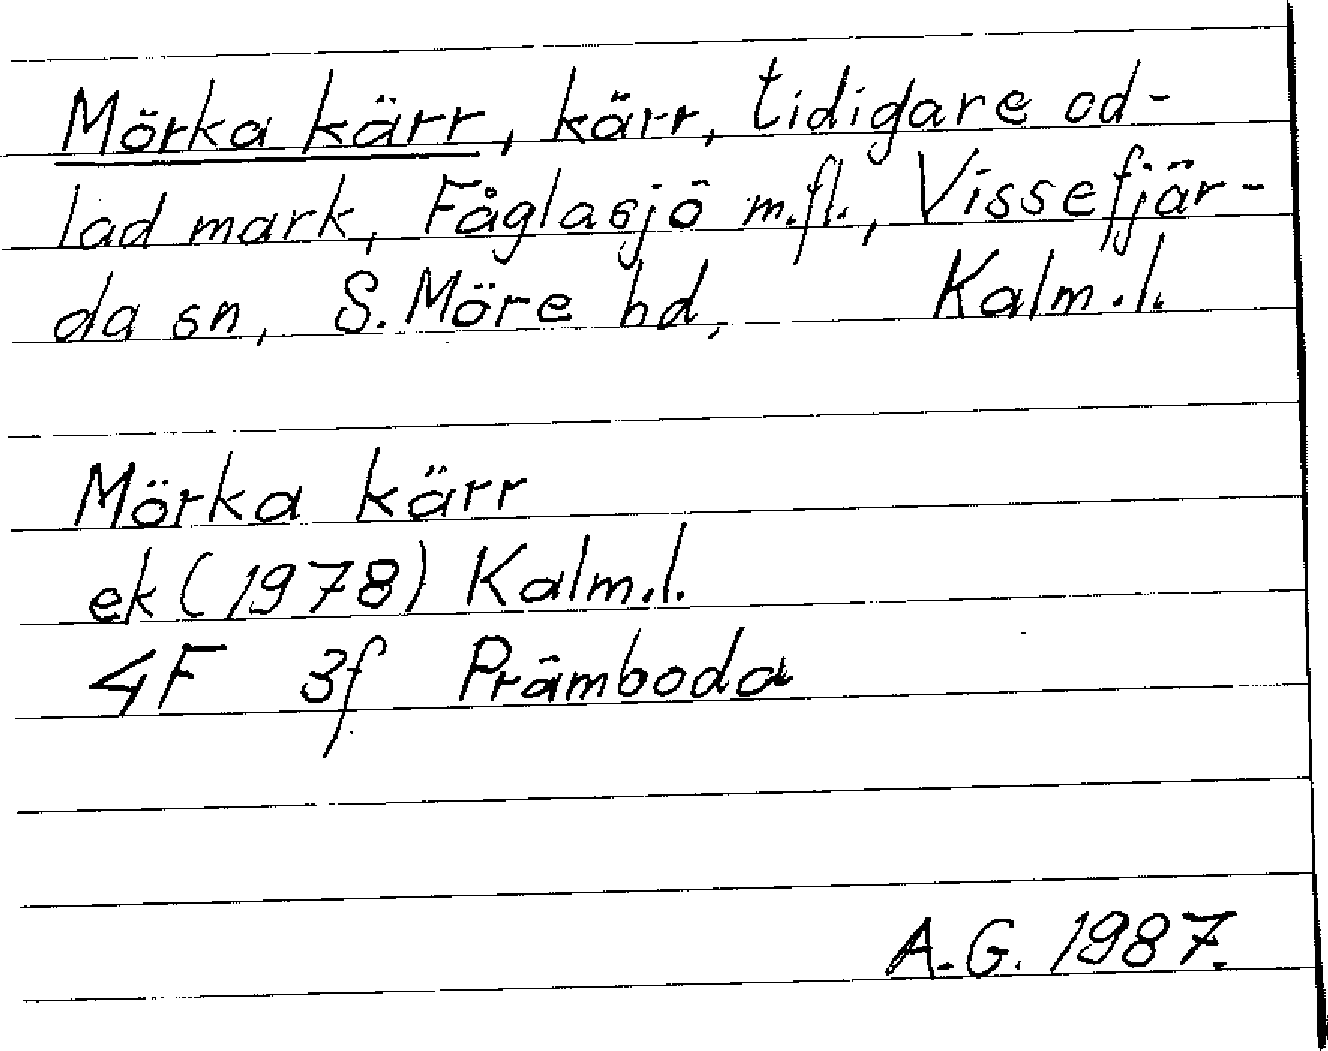 Mörka kärr, kärr, tidigare od-
lad mark, Fåglasjö m.fl., Vissefjär-
da sn, S. Möre hd, Kalm.l.
Mörka kärr
ek (1978) Kalm.l.
4F 3f Pråmboda
A.G. 1987.